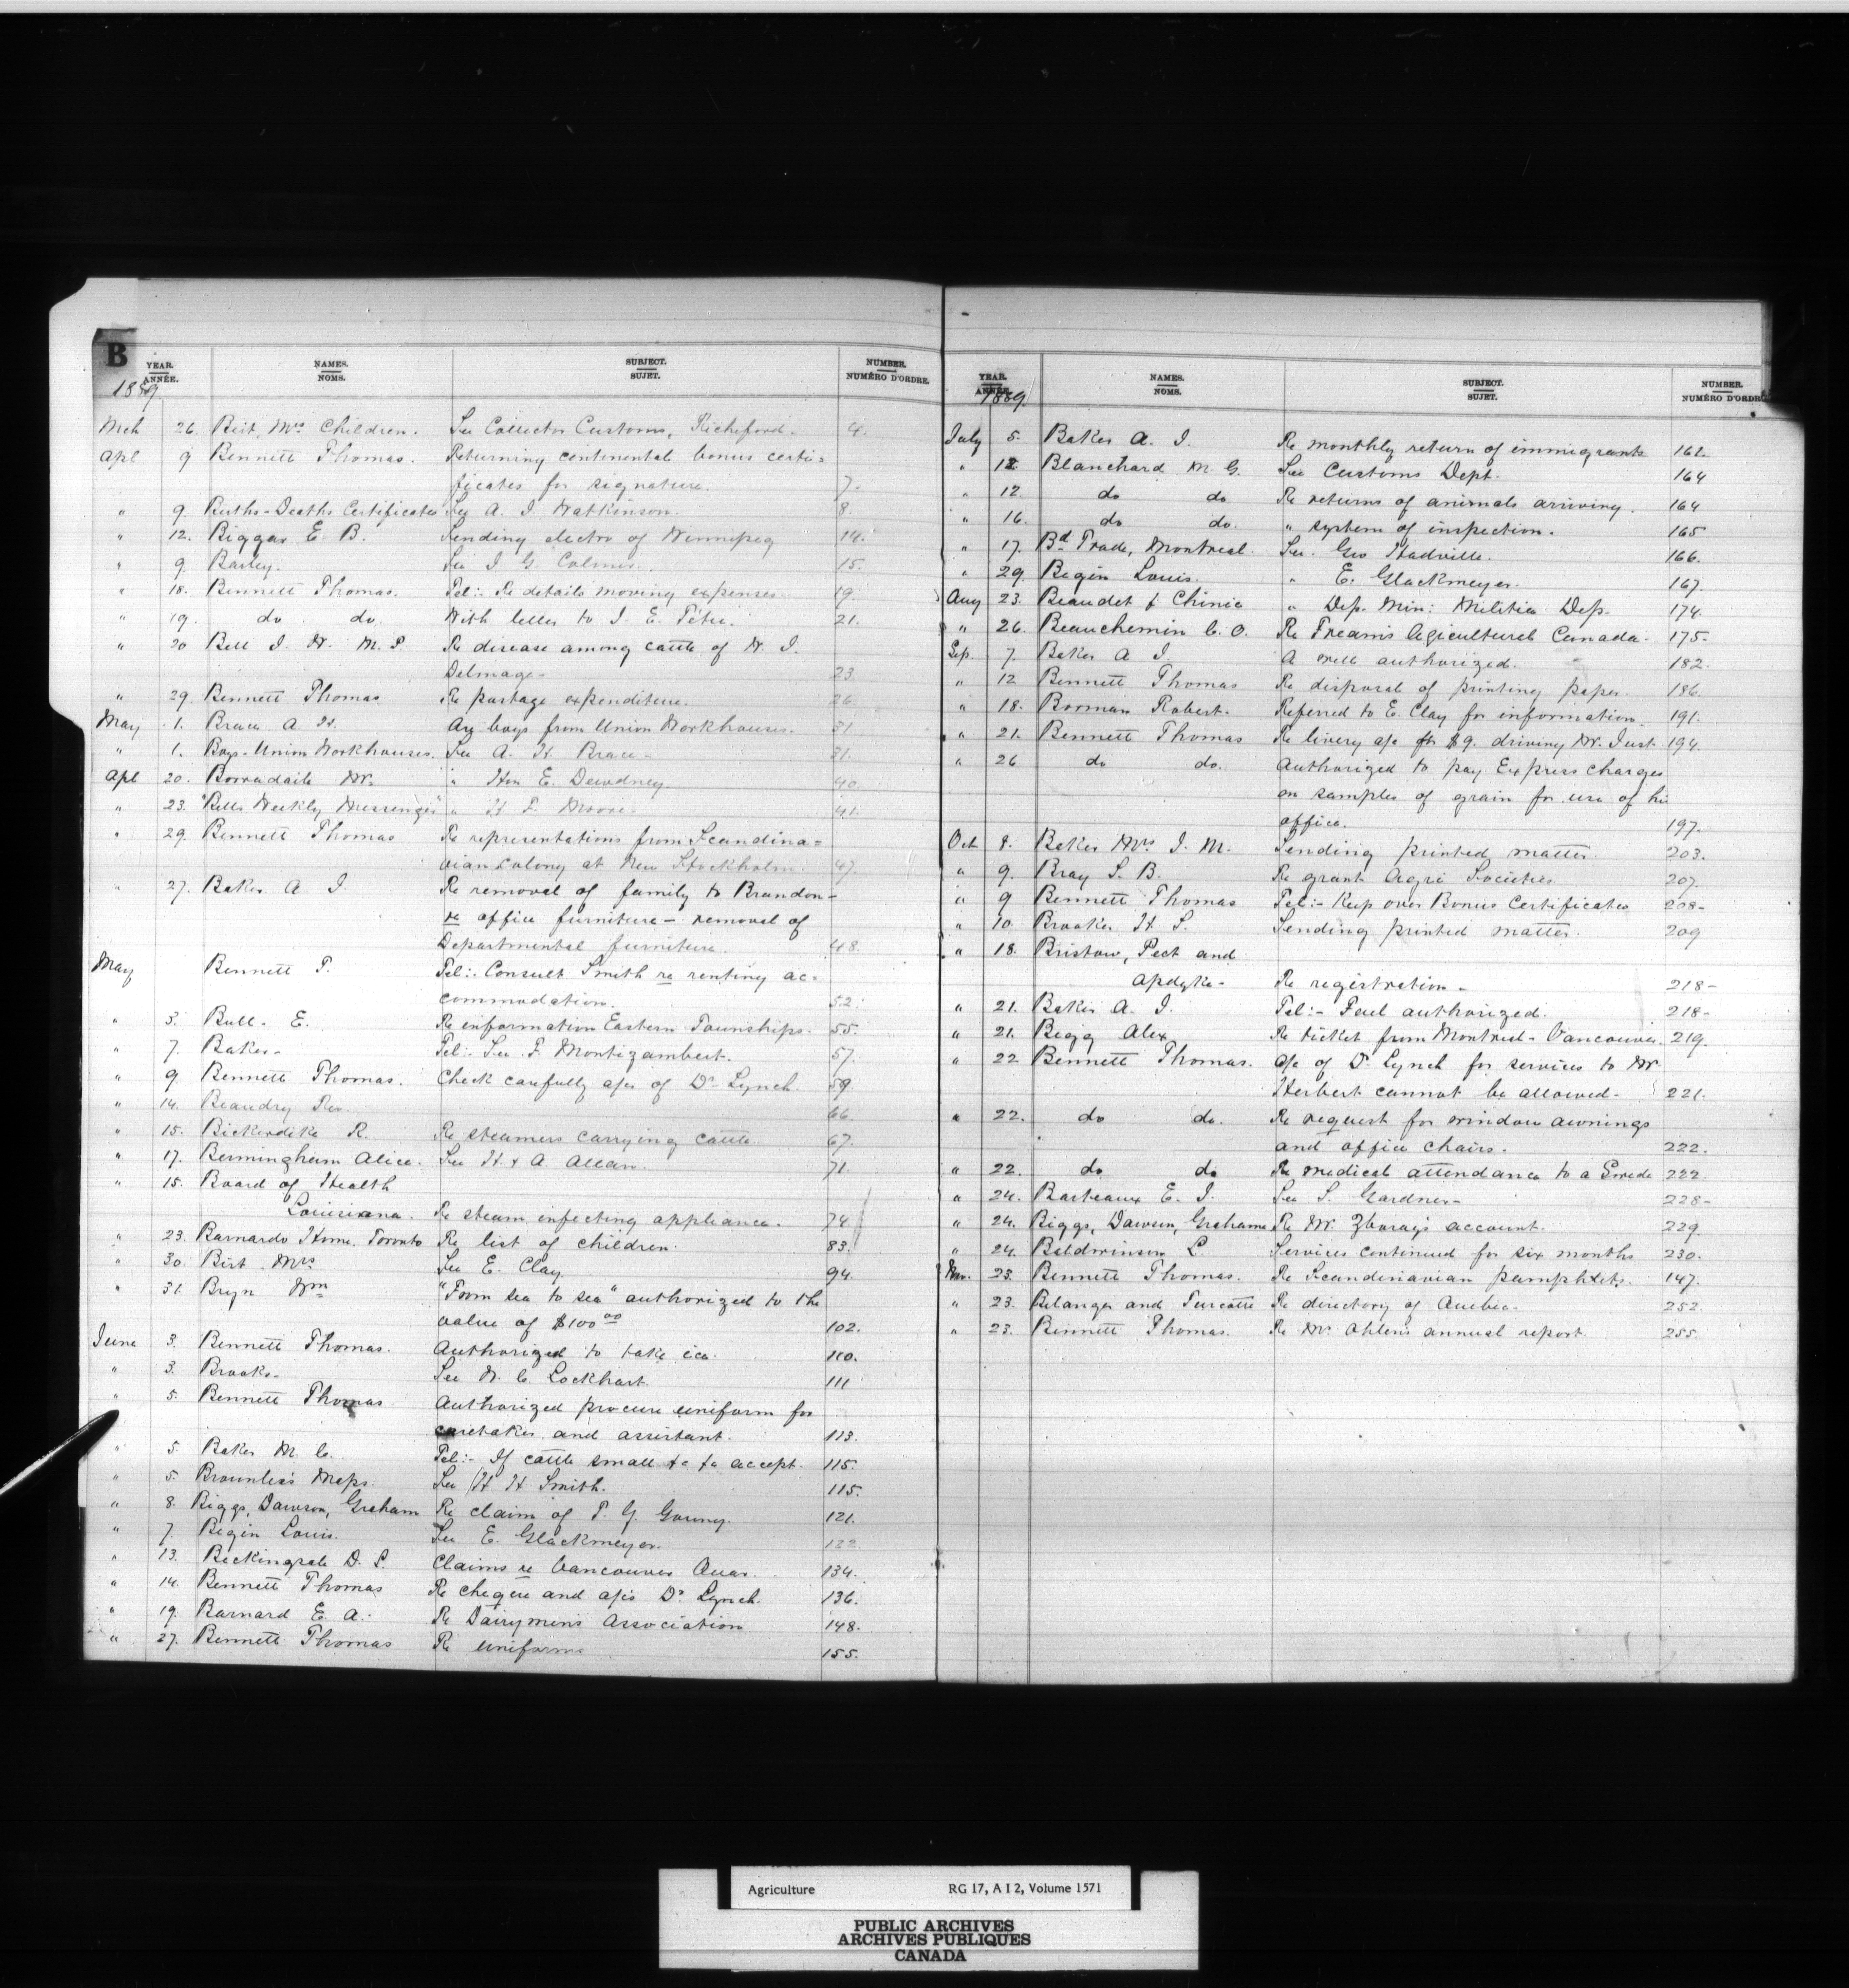 B
YEAR. NAMES. SUBJECT. NUMBER.
ANNÉE. NOMS. SUJET. NUMÉRO D'ORDRE.
1889
Mch 26. Birt, Mrs Children. See Collector Customs, Richford. 4.
Apl 9 Bennett Thomas. Returning continental bonus certi=
ficates for signature. 7.
" 9. Births-Deaths Certificates See A. J. Watkinson. 8.
" 12. Biggar E. B. Sending electro of Winnipeg 14.
" 9. Barley. See J. G. Colmer. 15.
" 18. Bennett Thomas. Tel:- Re details moving expenses. 19.
" 19. do do. With letter to J. E. Tétu. 21.
" 20 Bell J. W. M.P. Re disease among cattle of W. J.
Delmage. 23.
" 29. Bennett Thomas Re postage expenditure. 26.
May 1. Brace A. H. Ay boys from Union Workhouses. 31
" 1. Boys-Union Workhouses. See A. H. Brace. 31.
Apl 20. Borradaile Wr. " Hon E. Dewdney 40.
" 23. "Bells Weekly Messenger" " H F. Moore. 41.
" 29. Bennett Thomas Re representations from Scandina=
vian colony at New Stockholm. 47.
" 27. Baker A. J. Re removal of family to Brandon-
re office furniture - removal of
Departmental furniture. 48.
May Bennett T. Tel:- Consult Smith re renting ac=
commodation. 52.
" 3. Bull. E. Re information Eastern Townships. 55.
" 7. Baker- Tel:- See F. Montizambert. 57.
" 9. Bennett Thomas. Check carefully a/cs of Dr Lynch. 59.
" 14. Beaudry Rev. 66
" 15. Bickerdike R. Re steamers carrying cattle. 67.
" 17. Bermingham Alice. See H & A. Allan. 71.
" 15. Board of Health
Louisiana. Re steam infecting appliance. 74.
" 23. Barnardo Home. Toronto Re list of children. 83.
" 30. Birt Mrs See E. Clay. 94.
" 31. Bryn Wm "From sea to sea" authorized to the
value of $100 00 102.
June 3. Bennett Thomas. Authorized to take ice. 110.
" 3. Brooks- See W. C. Lockhart. 111
" 5. Bennett Thomas. Authorized procure uniform for
caretaker and assistant. 113.
" 5. Baker M. C. Tel:- If cattle small &c &c accept. 115.
" 5. Brownlee's Maps. See H H Smith. 115.
" 8. Biggs, Dawson, Graham Re claim of T. G. 121.
" 7. Begin Louis. See E. Glackmeyer. 122.
" 13. Beckingsale D. L. Claims re Vancouver Quar. 134.
" 14. Bennett Thomas Re cheque and a/cs Dr Lynch. 136.
" 19. Barnard E. A. Re Dairymen's Association 148.
" 27. Bennett Thomas Re uniforms 155.
YEAR. NAMES. SUBJECT. NUMBER.
ANNÉE. NOMS. SUJET. NUMÉRO D'ORDRE
1889.
July 5. Baker A. J. Re monthly return of immigrants 162.
" 12. Blanchard M. G. See Customs Dept. 164
" 12. do do Re returns of animals arriving. 164
" 16. do do. " system of inspection. 165
" 17. Bd Trade, Montreal. See Geo Hadrill. 166.
" 29. Begin Louis. " E. Glackmeyer. 167.
Aug 23. Beaudet & Chinic " Dep. Min: Militia Dep. 174.
" 26. Beauchemin C. O. Re Fream's Agricultural Canada. 175.
Sep. 7. Baker A J. A well authorized. 182.
" 12 Bennett Thomas Re disposal of printing paper. 186.
" 18. Borman Robert. Referred to E. Clay for information. 191.
" 21. Bennett Thomas Re livery a/c for $9. driving Mr. Just. 194.
" 26 do do. Authorized to pay Express charges
on samples of grain for use of his
office. 197.
Oct 8. Baker Mrs J. M. Sending printed matter. 203.
" 9. Bray S. B. Re grant Agri Societies. 207.
" 9 Bennett Thomas Tel:- Keep over Bonus Certificates 208-
" 10. Brooks H S. Sending printed matter. 209
" 18. Bristow, Peet and
Opdyke- Re registration- 218-
" 21. Baker A. J. Tel:- Fuel authorized. 218-
" 21. Begg Alex Re ticket from Montreal-Vancouver. 219.
" 22 Bennett Thomas. a/c of Dr Lynch for services to Mr
Herbert cannot be allowed. 221.
" 22. do do. Re request for window awnings
and office chairs. 222.
" 22. do do Re medical attendance to a Swede 222.
" 24. Barteaux E. J. See S. Gardner- 228-
" 24. Biggs, Dawson, Grahame Re Mr. Zboray's account. 229.
" 24. Baldwinson L Services continued for six months 230.
Nov. 23. Bennett Thomas. Re Scandinavian pamphlets. 147.
" 23. Belanger and Turcotte Re directory of Quebec. 252.
" 23. Bennett Thomas. Re Mr. Ohlen's annual report. 255.
Agriculture RG 17, A I 2, Volume 1571
PUBLIC ARCHIVES
ARCHIVES PUBLIQUES
CANADA